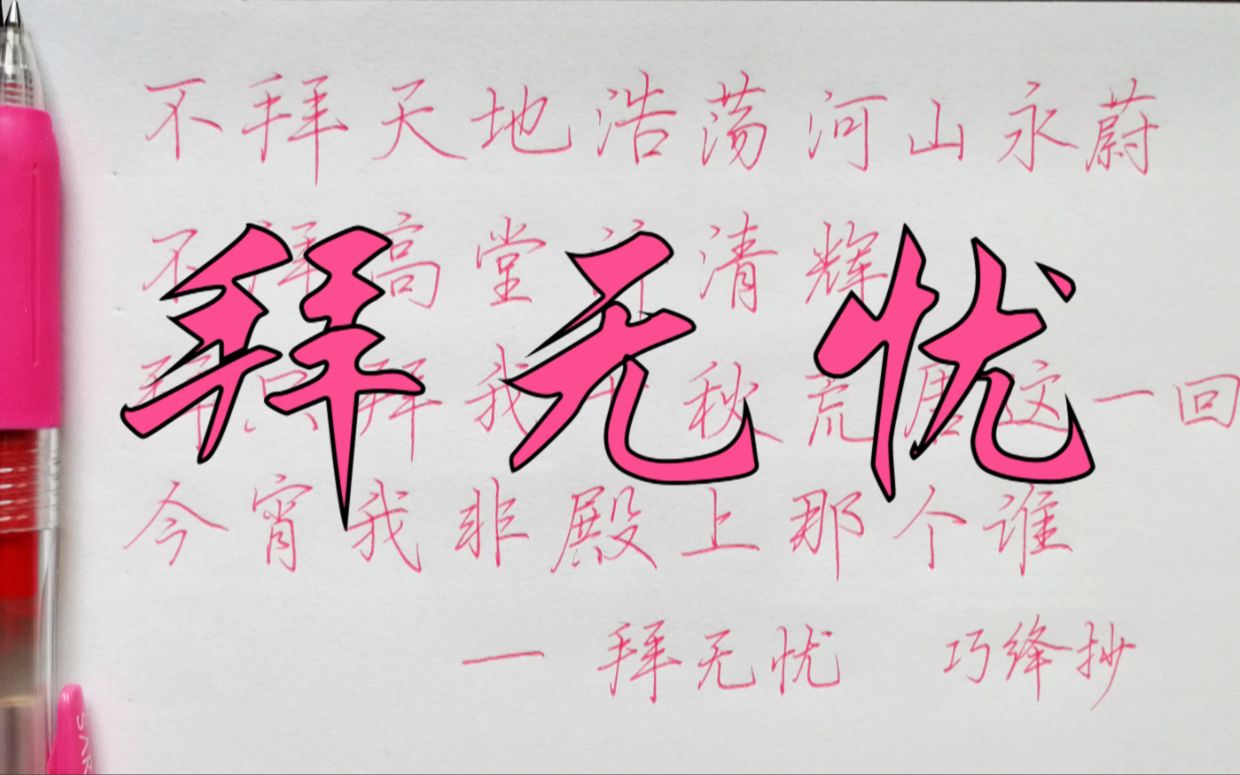 不拜天地浩荡河山永蔚
不拜高堂 清辉
拜无忧
拜只拜我千秋荒唐这一回
今宵我非殿上那个谁
— 拜无忧 巧绛抄
SAK